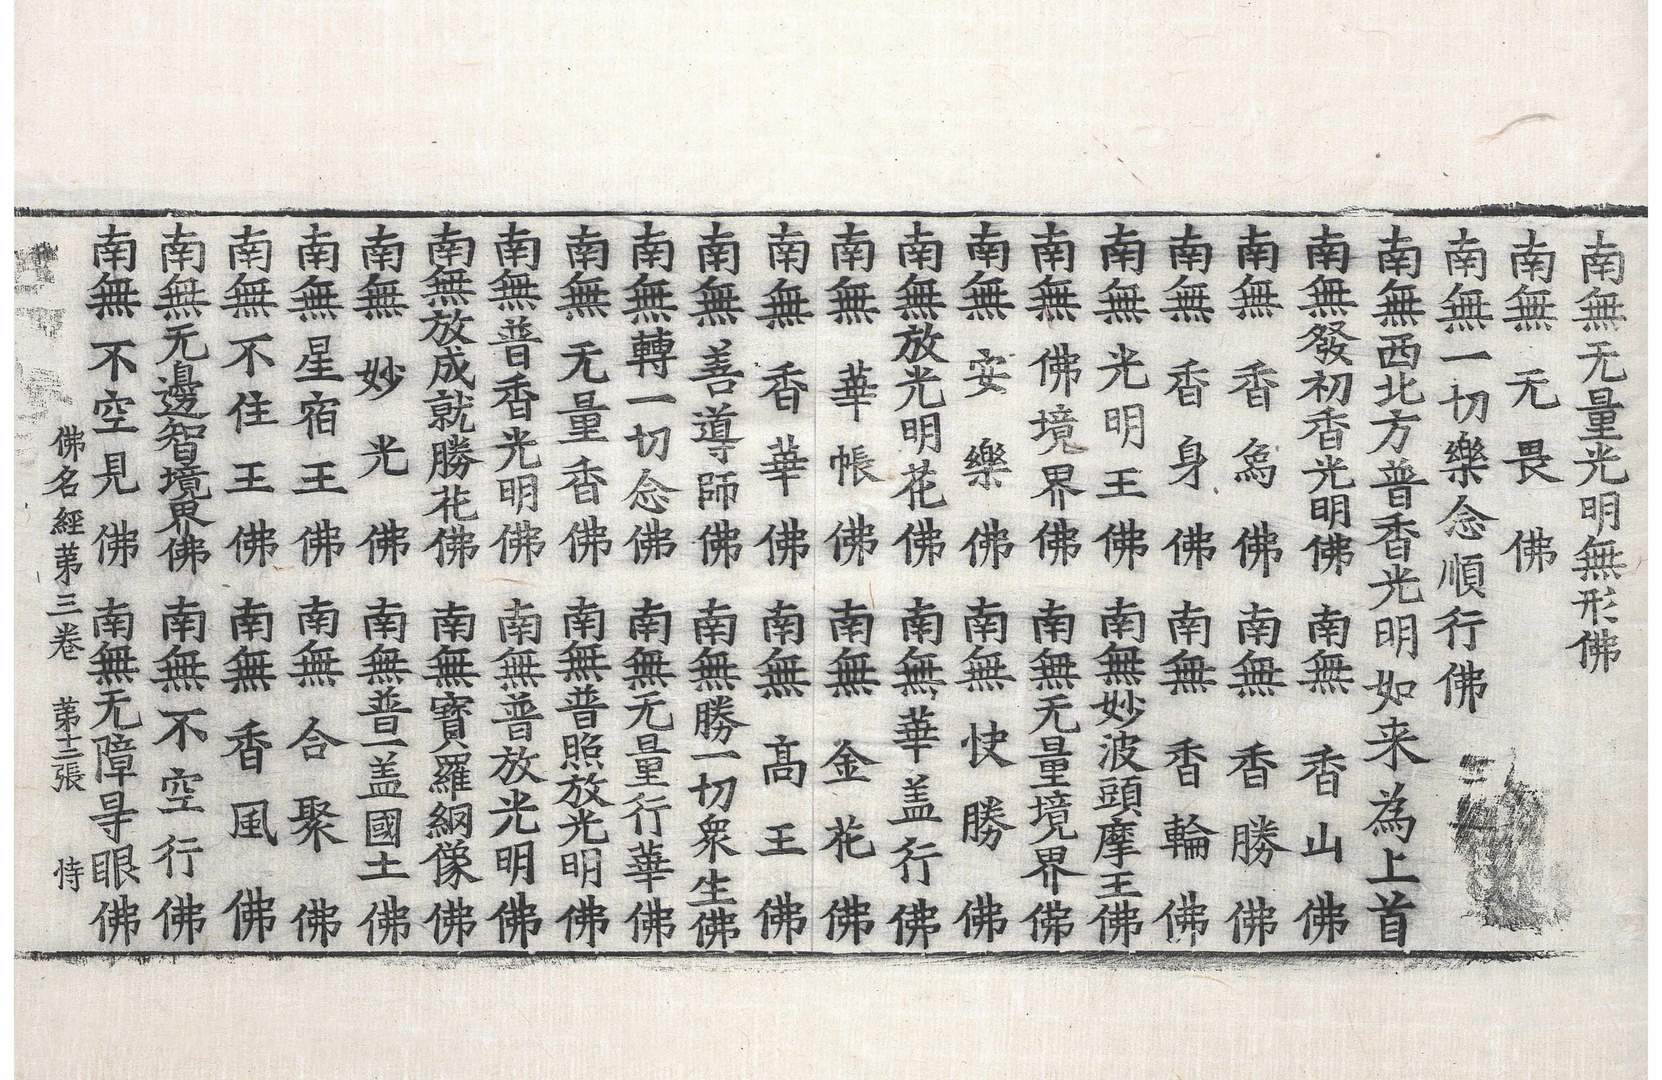 南無无量光明無形佛
南無无畏佛
南無一切樂念順行佛
南無西北方普香光明如来為上首
南無發初香光明佛 南無香山佛
南無香烏佛 南無香勝佛
南無香身佛 南無香輪佛
南無光明王佛 南無妙波頭摩王佛
南無佛境界佛 南無无量境界佛
南無安樂佛 南無快勝佛
南無放光明花佛 南無華盖行佛
南無華帳佛 南無金花佛
南無香華佛 南無髙王佛
南無善導師佛 南無勝一切衆生佛
南無轉一切念佛 南無无量行華佛
南無无量香佛 南無普照放光明佛
南無普香光明佛 南無普放光明佛
南無放成就勝花佛 南無寳羅網像佛
南無妙光佛 南無普一盖國土佛
南無星宿王佛 南無合聚佛
南無不住王佛 南無香風佛
南無无邊智境界佛 南無不空行佛
南無不空見佛 南無无障㝵眼佛
佛名經苐三卷 苐十二張 恃